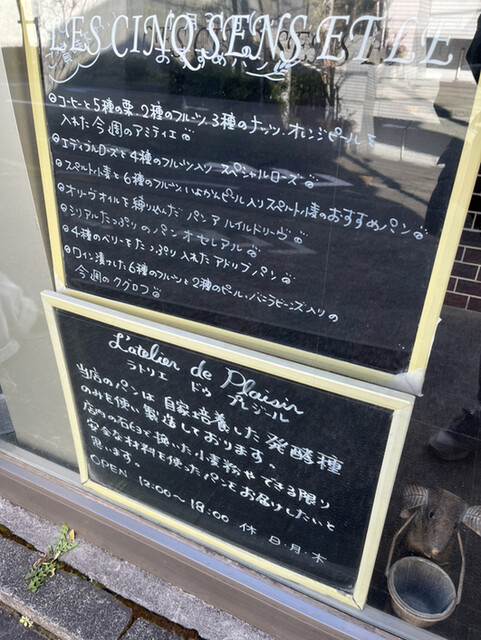 LES CINQ SENS ET LE
おすすめパン
コーヒーと5種の栗、2種のフルーツ、3種のナッツ、オレンジピールを
入れた今週のアミティエ
エディブルローズと4種のフルーツ入り スペシャルローズ
スペルト小麦と6種のフルーツ いよかんピール入りスペルト小麦のおすすめパン
オリーヴオイルを練り込んだ パン ア ルイルドリーヴ
シリアルたっぷりのパン オセレアル
4種のベリーをたっぷり入れたアドリブパン
ワイン漬けした6種のフルーツと2種のピール、バニラビーンズ入りの
今週のクグロフ
L'atelier de Plaisir
ラトリエ ドゥ プレジール
当店のパンは自家培養した発酵種
のみを使い製造しております。
店内の石臼で挽いた小麦粉やできる限り
安全な材料を使ったパンをお届けしたいと
思います。
OPEN 12:00〜18:00 休 日・月・木